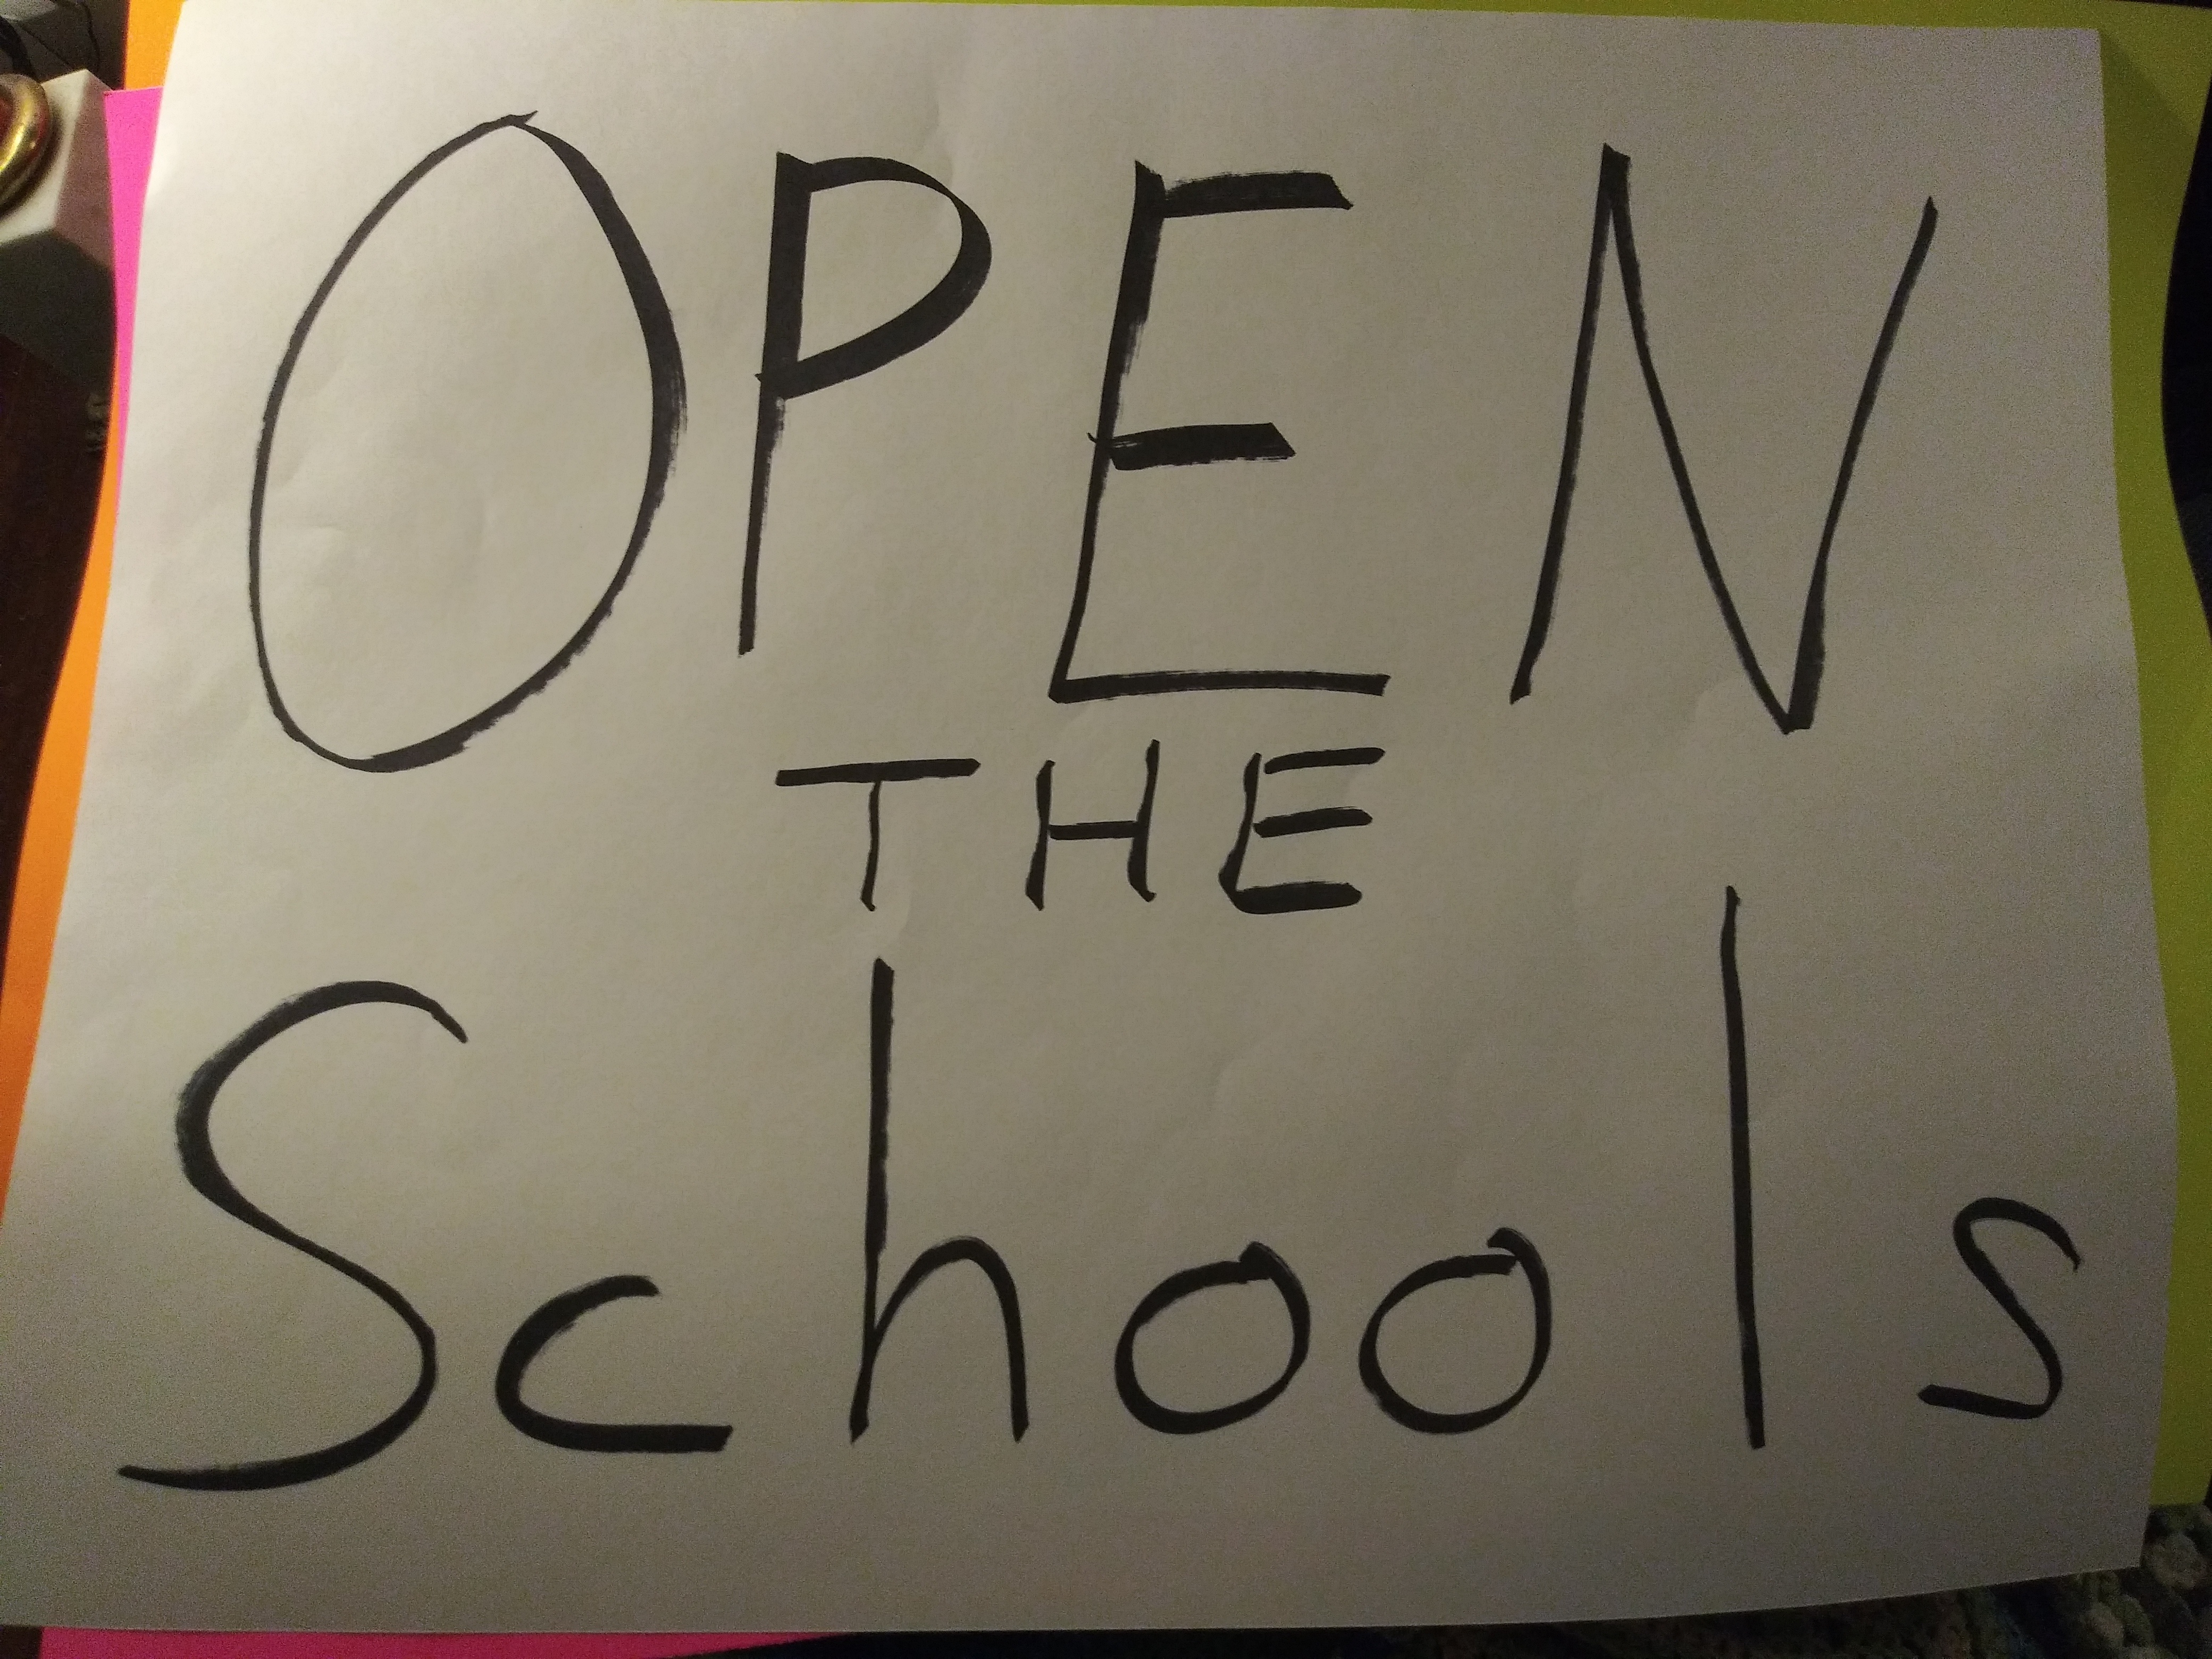 OPEN
THE
Schools